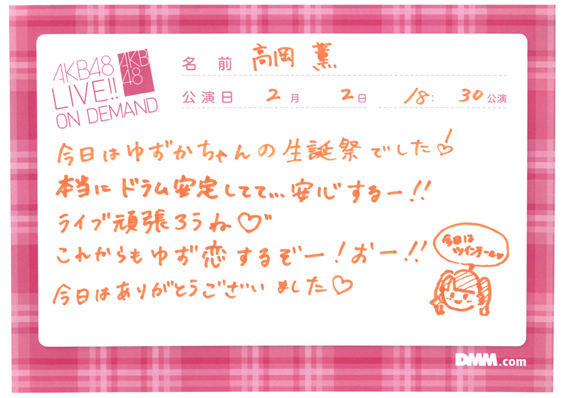 AKB48
LIVE!!
ON DEMAND
AKB
48
名 前 高岡 薫
公演日 2月 2日 18:30公演
今日はゆずかちゃんの生誕祭でした♡!
本当にドラム安定してて…安心するー!!
ライブ頑張ろうね♡"
これからもゆず恋するぞー!おー!!
今日はありがとうございました♡
今日は
ツインテール♥
DMM.com